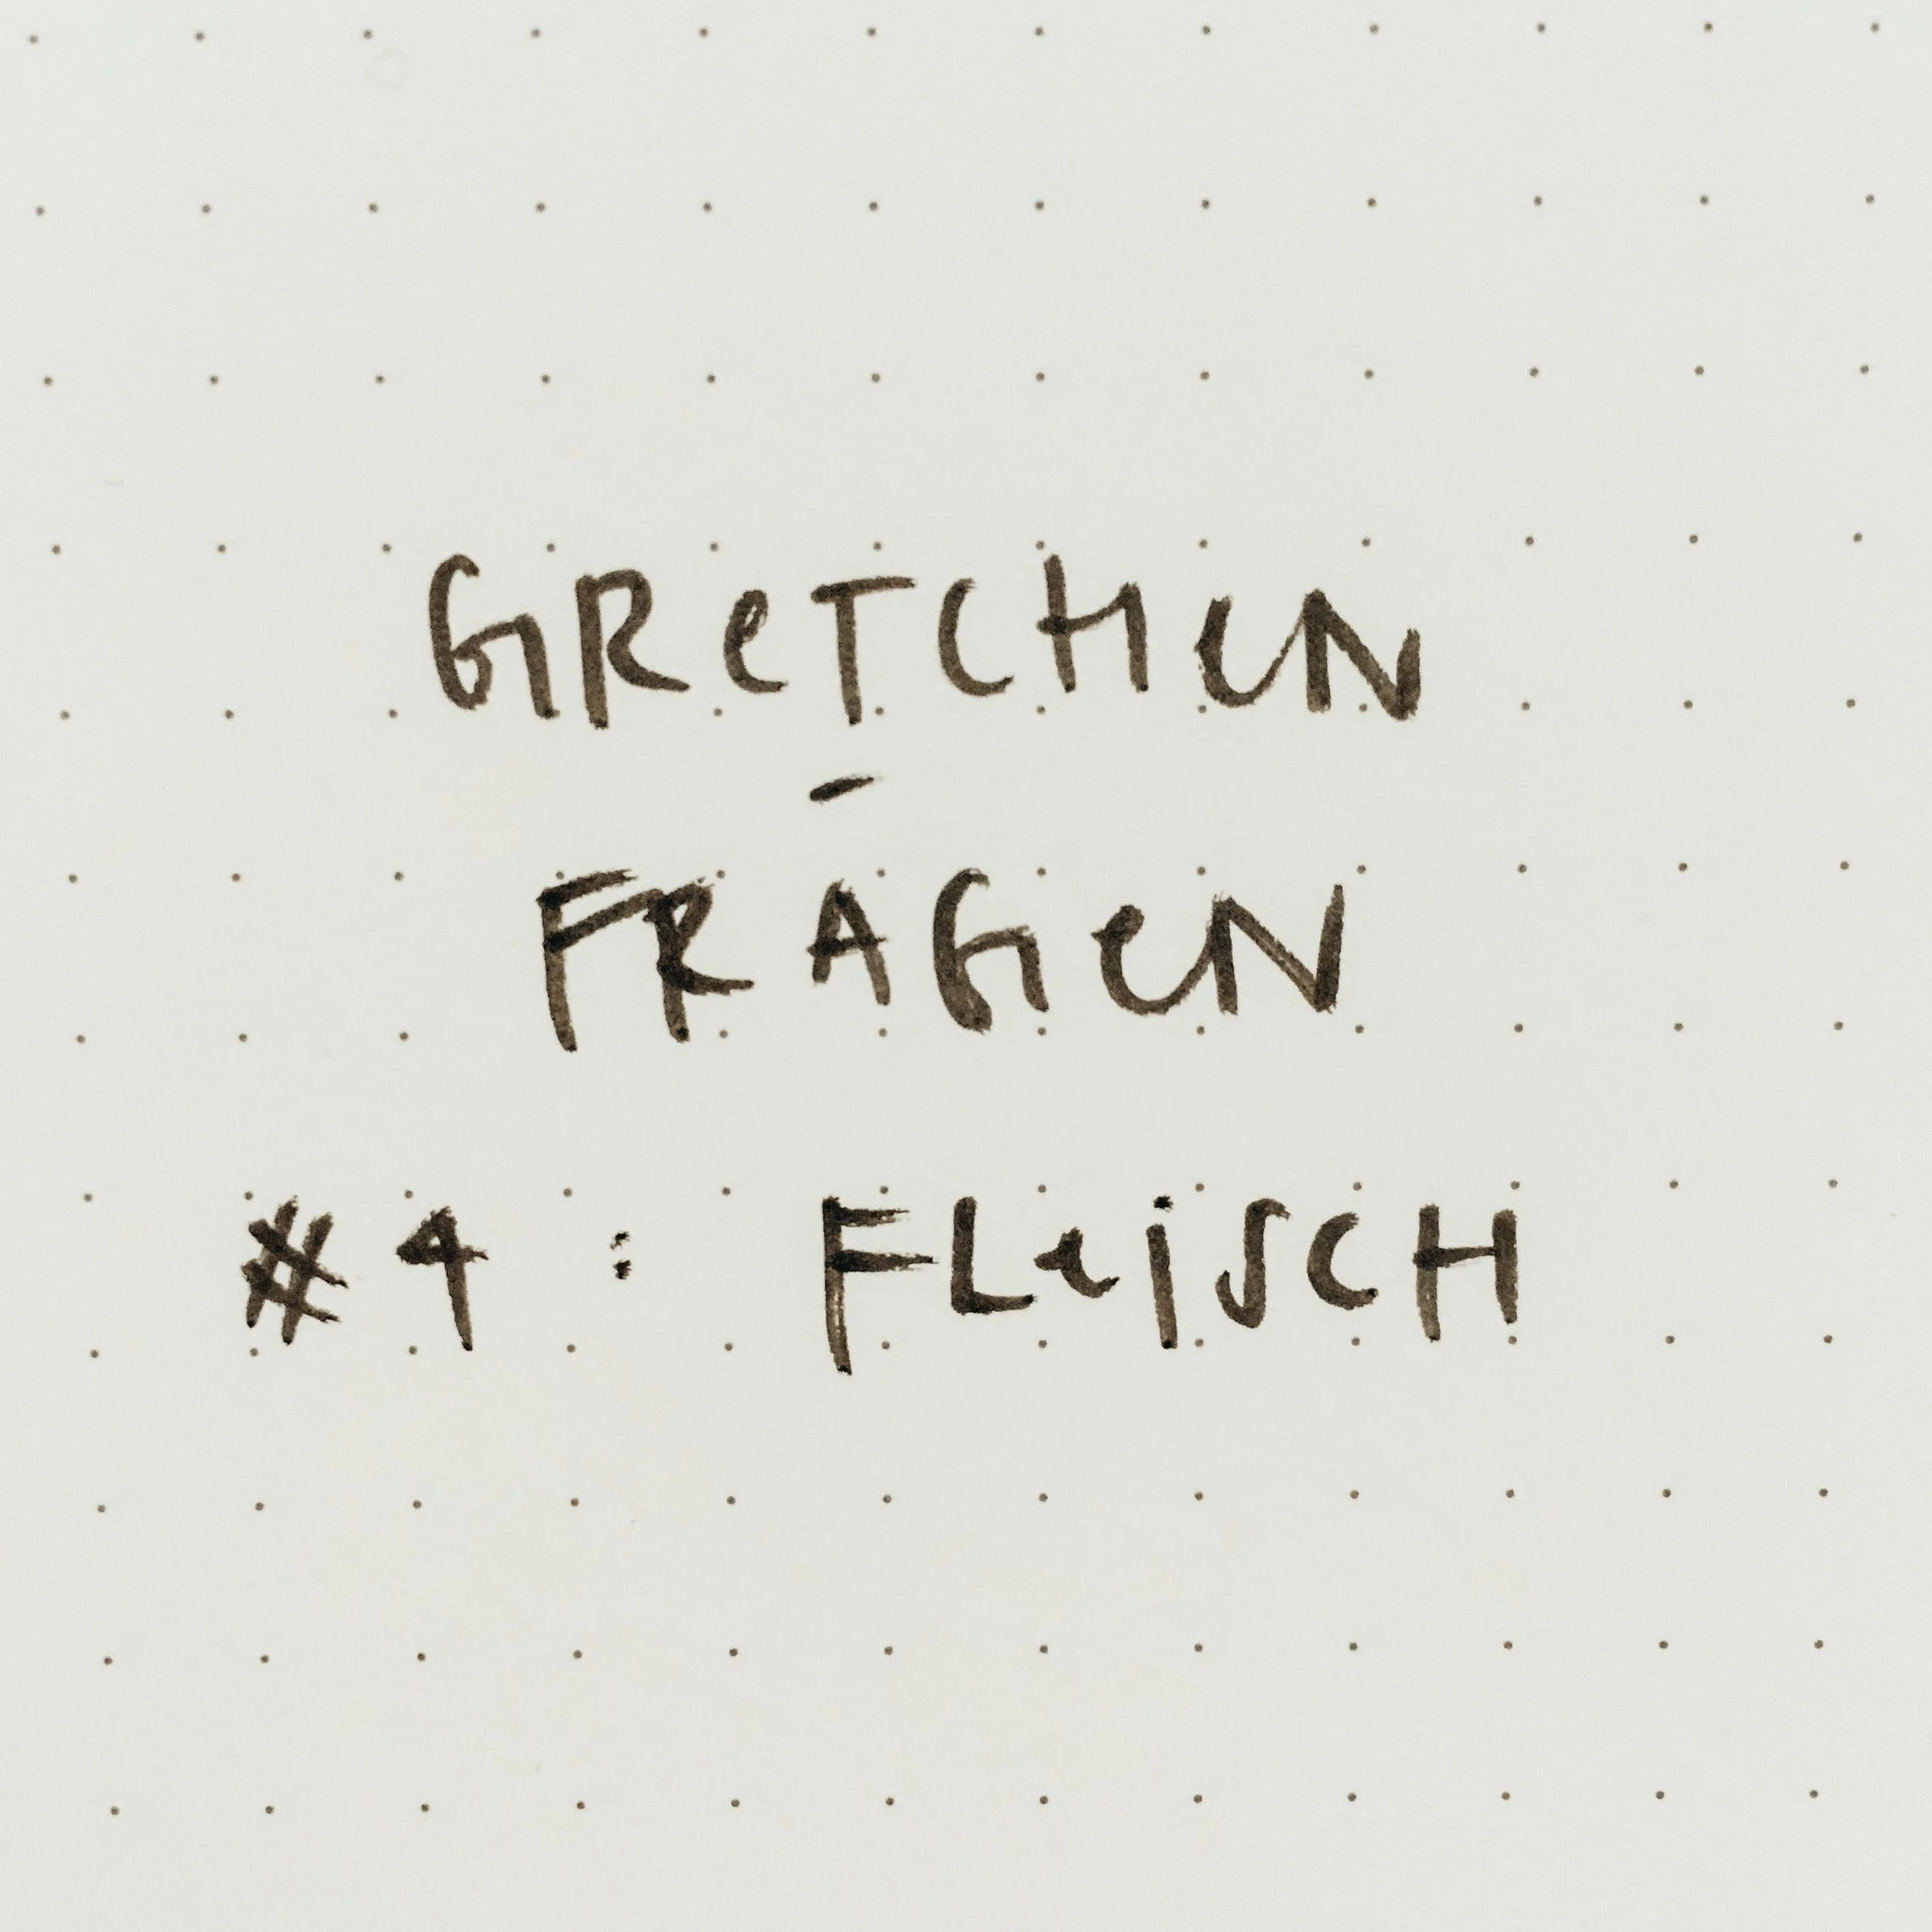 GReTCHeN
-
FRAGeN
#4: FLeiSCH